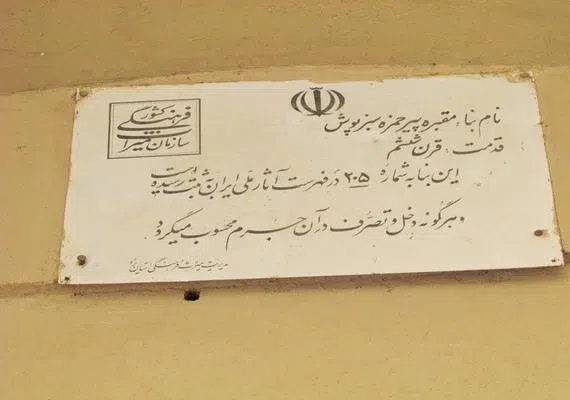 سازمان میراث
فرهنگی کشور
نام بنا، مقبره پیر حمزه سبز پوش
قدمت، قرن ششم
این بنا به شماره ۲۰۵ در فهرست آثار ملی ایران به ثبت رسیده است
و هرگونه دخل و تصرف در آن جرم محسوب میگردد
مدیریت میراث فرهنگی استان یزد